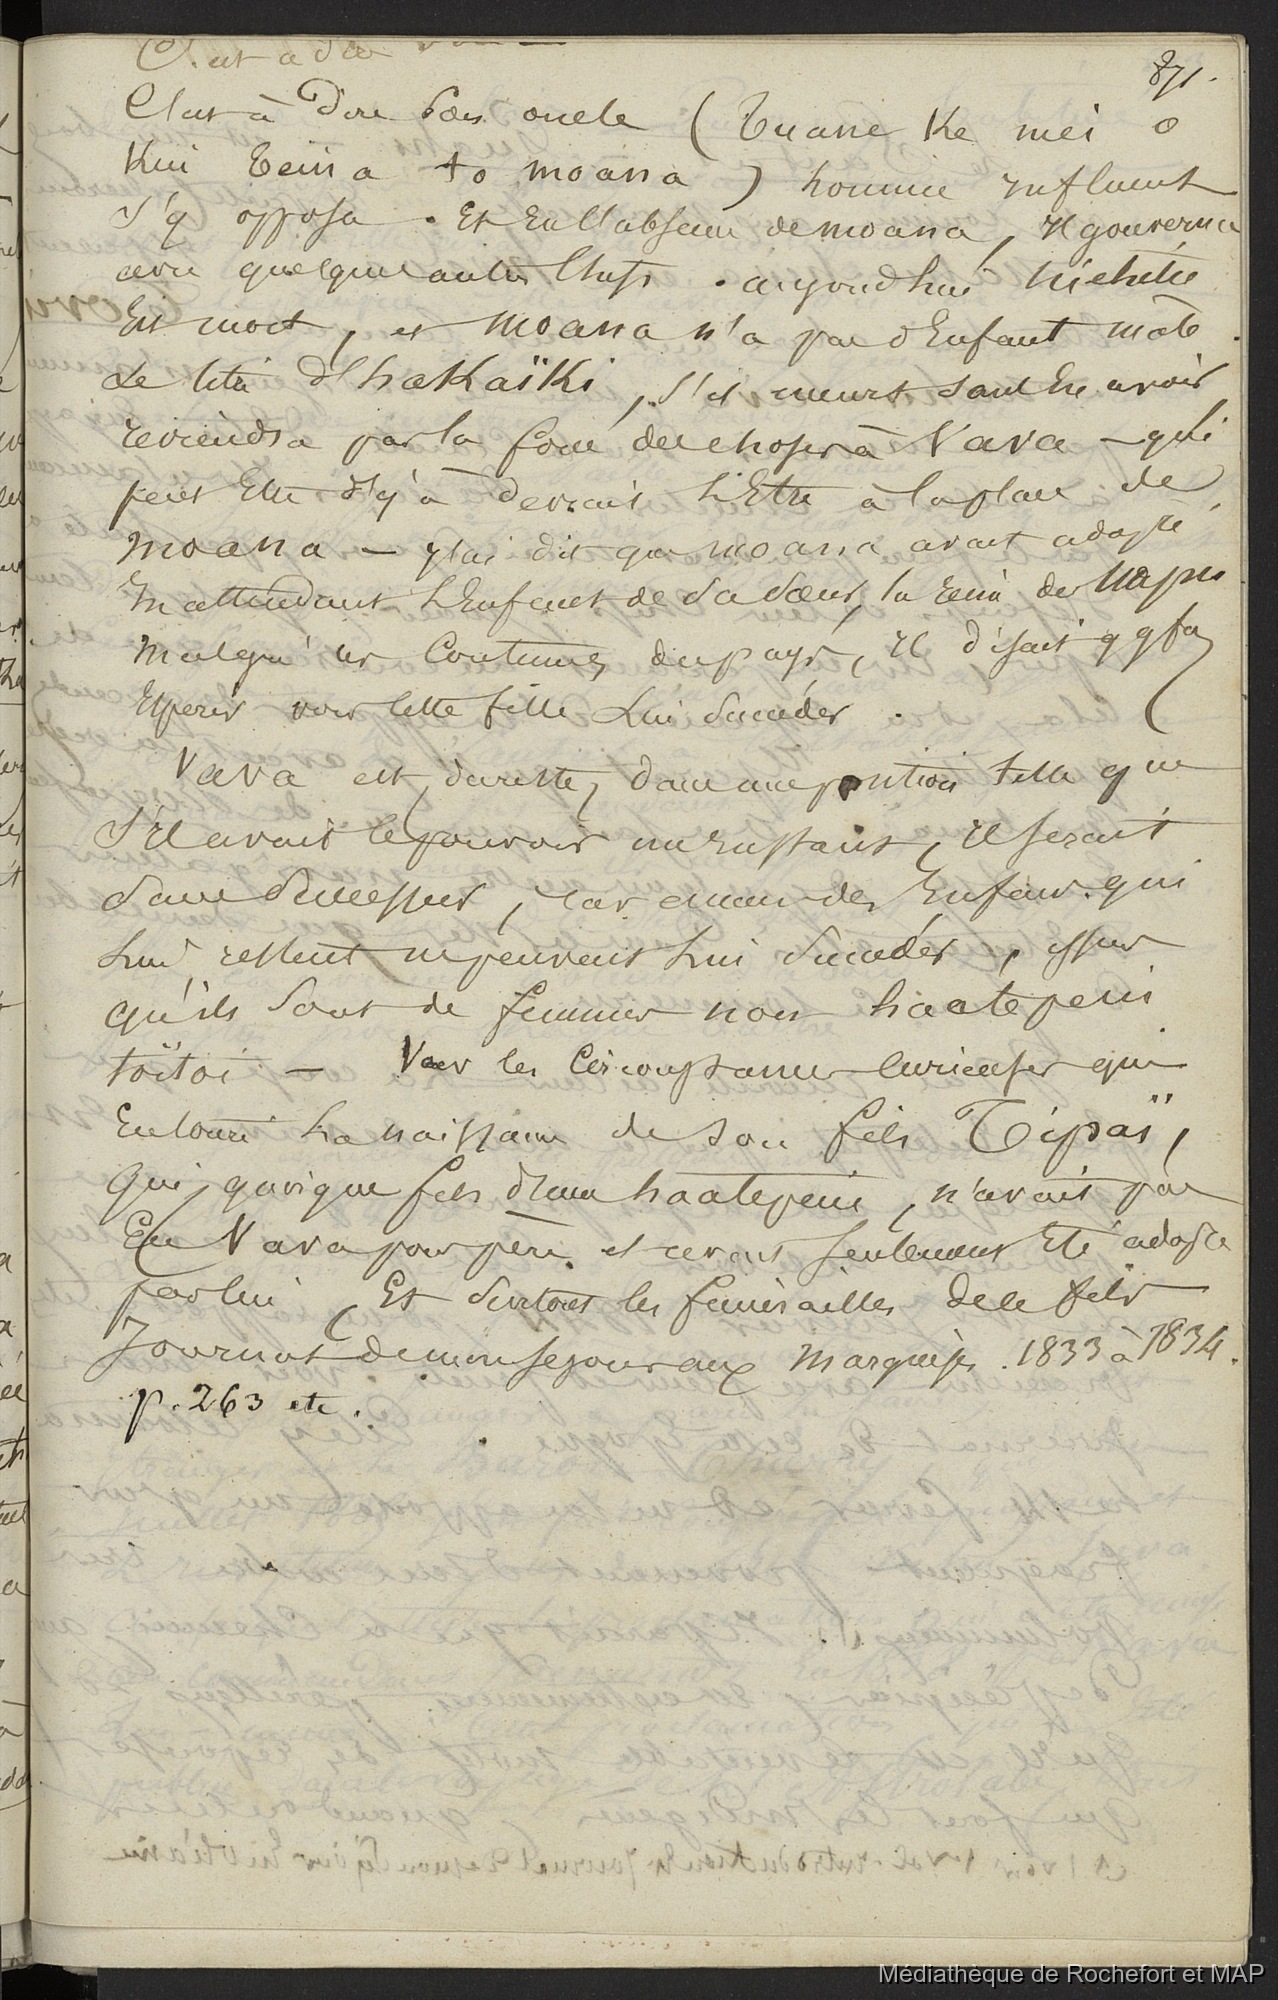 C'est à dire
871.
C'est à dire son oncle (Tuane Ke mei o
Kui teina to moana) homme influent
s'y opposa. Et en l'absence de moana, il gouverna
avec quelques autres Chefs. aujourd'hui
Est mort, et moana n'a pas d'Enfant mâle.
Le titre d'hakaïki, s'il meurt sans En avoir,
reviendra par la force des choses à Vava - qui
peut Etre dit-on devrait l'Etre à la place de
moana - j'ai dit que moana avait adopté
En attendant l'Enfant de sa sœur, la reine des
malgré les Coutumes du pays, il disait
Esperer voir cette fille Lui Succéder.
Vava est, du reste, dans une position telle que
s'il avait le pouvoir un instant, il serait
sans Successeur, car aucun des Enfans qui
Lui restent ne peuvent Lui Succéder, issus
qu'ils sont de femmes non haatepeiu
toïtoi - Voir les Circonstances curieuses qui
Entoure la naissance de son fils Tipaï,
Qui, quoique fils d'une haatepeiu, n'avait pas
Eu Vava pour père et avait seulement Eté adopté
par lui, Et surtout les funérailles de ce fils
Journal de mon sejour aux Marquises. 1833 à 1834.
p. 263 etc.
Médiathèque de Rochefort et MAP